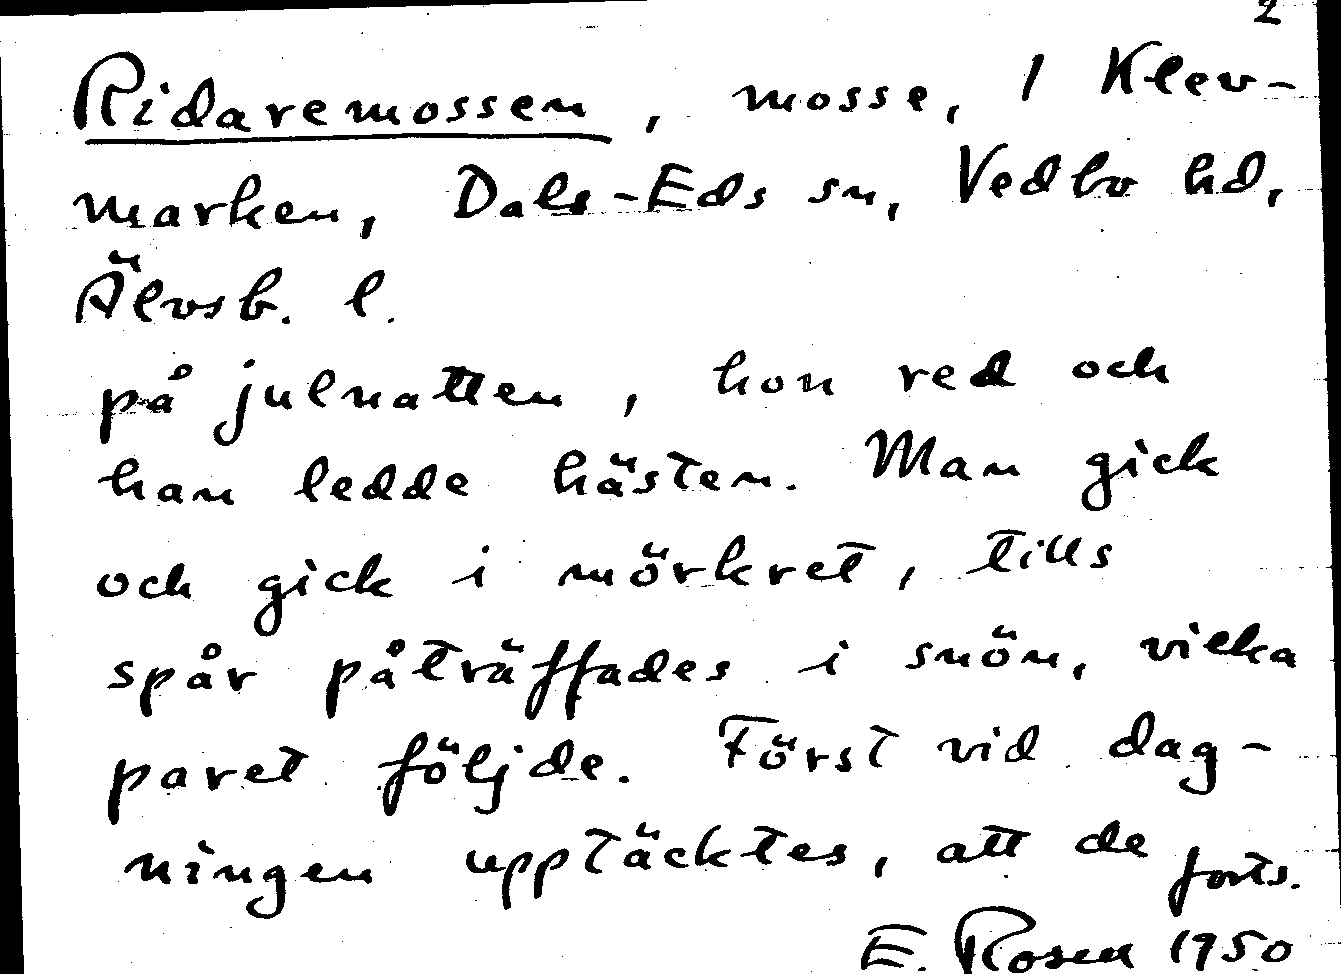 2
Ridaremossen, mosse, 1 Klev-
marken, Dals-Eds sn, Vedbo hd,
Älvsb. l.
på julnatten, hon red och
han ledde hästen. Man gick
och gick i mörkret, tills
spår påträffades i snön, vilka
paret följde. Först vid dag-
ningen upptäcktes, att de forts.
E. Rosen 1950